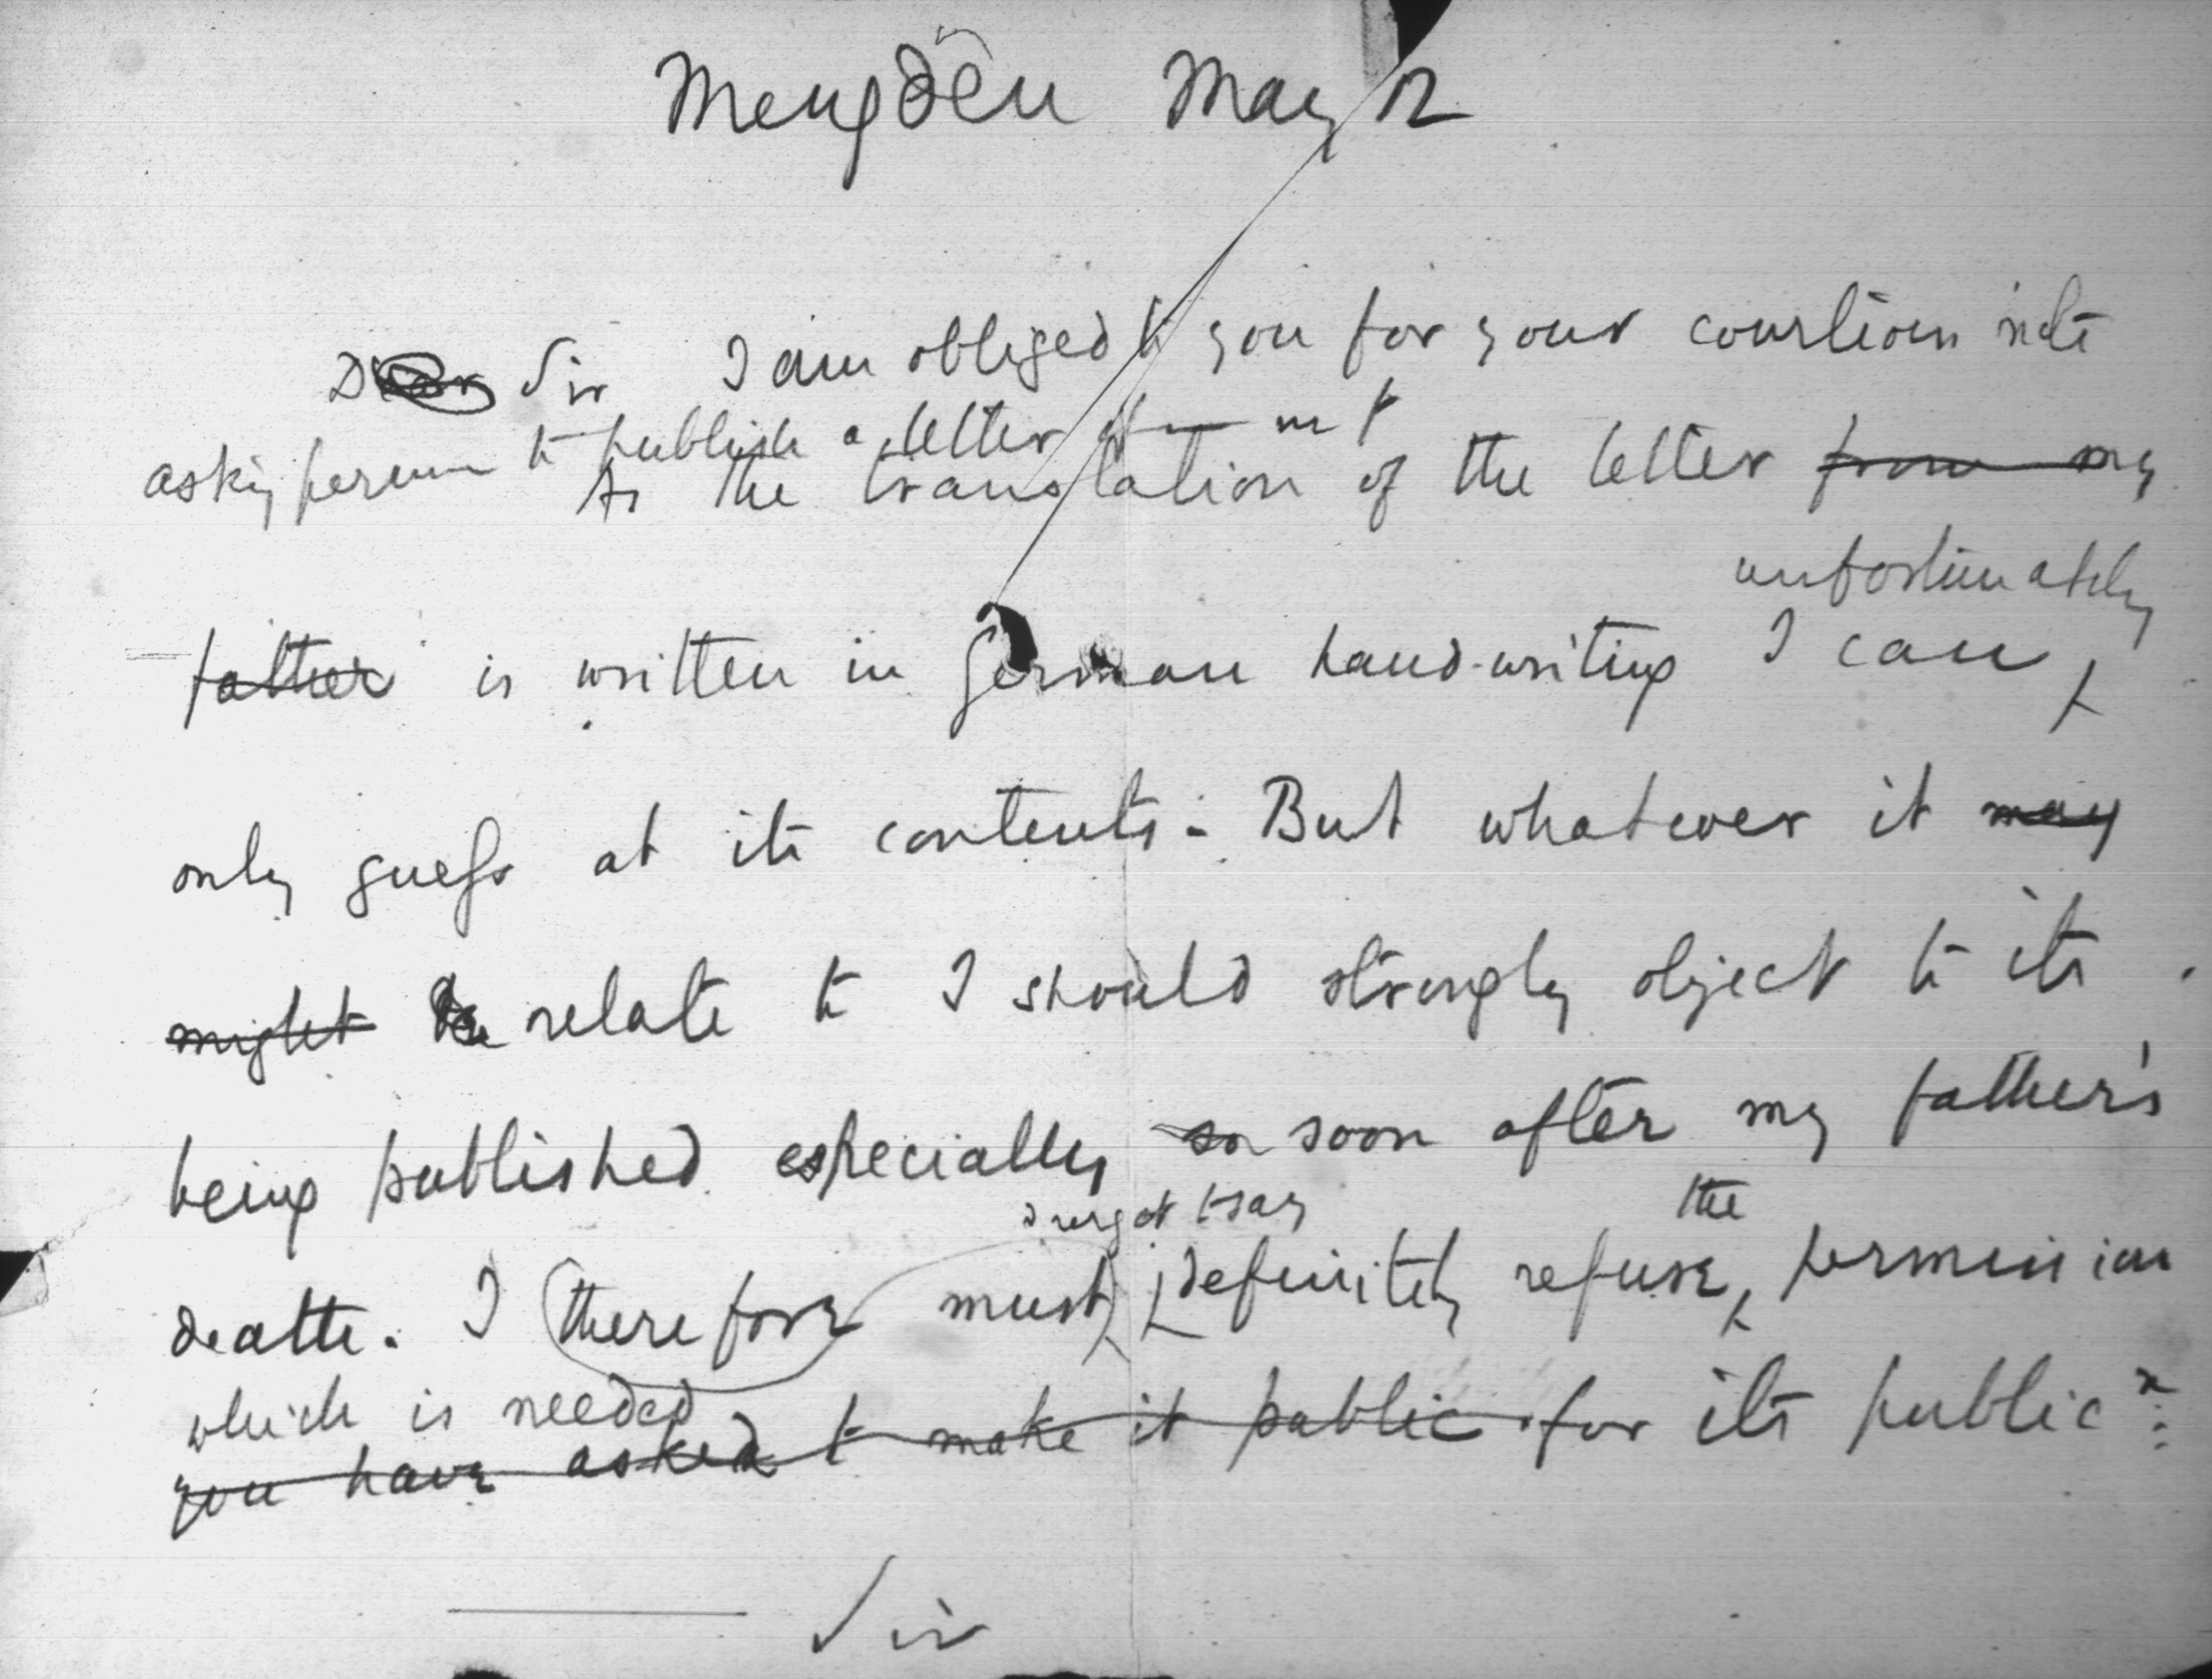 Mengdêu May 12
Dear Sir I am obliged to you for your courtious note
asking permn to publish a letter
As the translation of the letter from my
unfortunately
father is written in German hand-writing I can
only guess at its contents. But whatever it may
might be relate to I should strongly object to its
being published especially so soon after my father's
I regret to say the
death. I therefore must definitely refuse permission
which is needed
you have asked to make it public for its publicn:
Sir